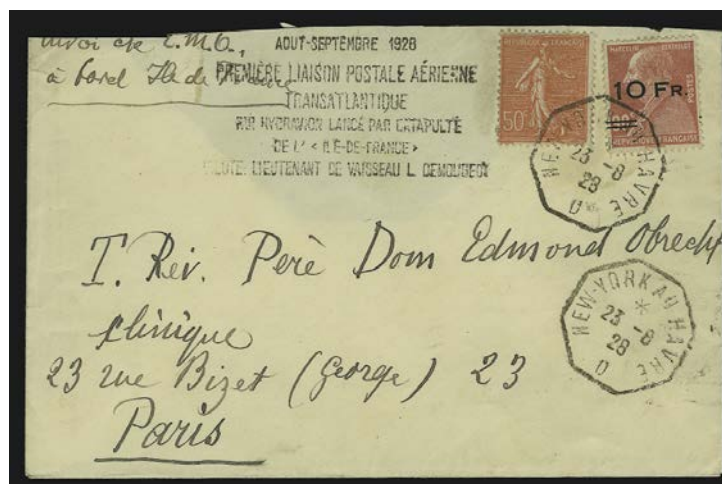 à bord Ile de
AOUT-SEPTEMBRE 1928
PREMIÈRE LIAISON POSTALE AÉRIENNE
TRANSATLANTIQUE
PAR HYDRAVION LANCÉ PAR CATAPULTE
DE L' « ILE-DE-FRANCE »
PILOTE: LIEUTENANT DE VAISSEAU L. DEMOUGEOT
REPUBLIQUE FRANÇAISE
50
POSTES
10 FR.
REPUBLIQUE FRANÇAISE
NEW-YORK AU HAVRE
23 -8
28
D
T. Rev. Père Dom Edmond Obrecht
clinique
23 rue Bizet (George) 23
Paris
NEW-YORK AU HAVRE
*
23 -8
28
D